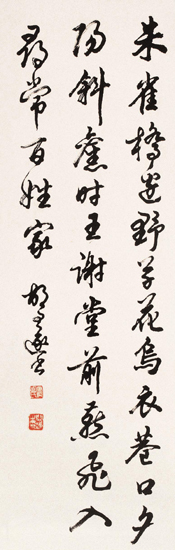 朱雀橋邊野草花烏衣巷口夕
陽斜舊時王謝堂前燕飛入
尋常百姓家